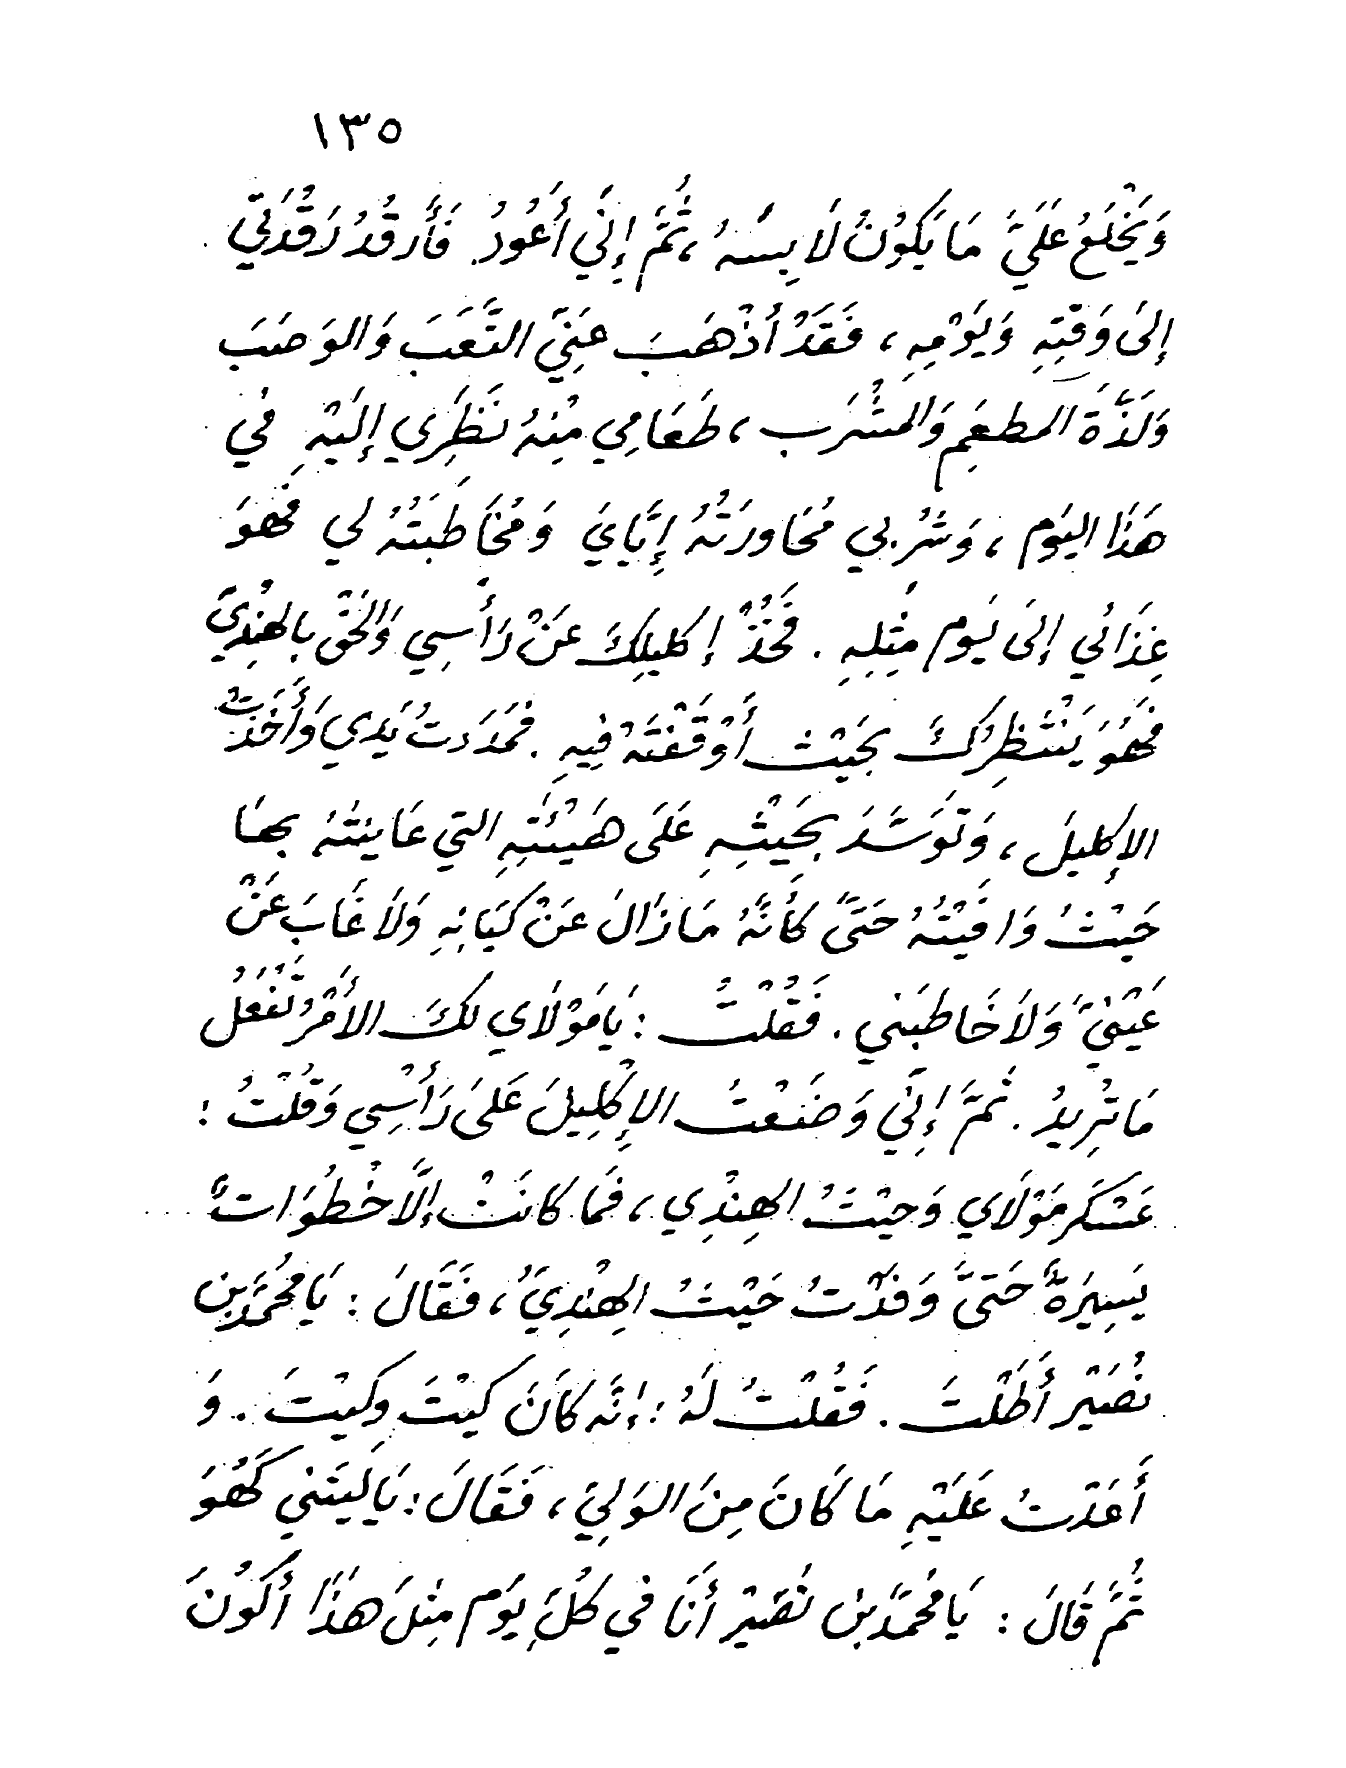 ١٣٥
وَيَخْلَعُ عَلَيَّ مَا يَكُونُ لَابِسَهُ ، ثُمَّ إِنِّي أَعُودُ فَأَرقُدُ رَقْدَتِي
إِلىَ وَقْتِهِ وَيَوْمِهِ ، فَقَدْ أَذْهَبَ عَنِّي التَّعَبَ وَالوَصَبَ
وَلَذَّةَ المطعَمِ وَالمشْرَب ، طَعَامِي مِنْهُ نَظَرِي إِلَيْهِ فِي
هَذَا اليَوْم ، وَشُربي مُحَاورَتُهُ إِيَّايَ وَمُخَاطَبَتُهُ لي فهوَ
غِذَائي إلىَ يَوم مِثِلِهِ . فَخُذْ إكليلِكَ عَنْ رَأسِي وَالحَقْ بالهِنْدِيّ
فَهُوَ يَنْتَظِرُكَ بحَيْث أَوْقَفْتَهُ فِيهِ . فمَدَدتُ يَدِي وَأَخَذتُ
الإكليلَ ، وَتَوَسَّدَ بحَيْثِهِ عَلَى هَيْئَتِهِ التي عَاينتهُ بهَا
حَيْثُ وَافَيْتُهُ حَتَّى كأنَّهُ مَا زَالَ عَنْ كَيَانِهِ وَلاَ غَابَ عَنْ
عَيْنيَّ وَلاَ خَاطَبَني . فَقُلْتُ : يَا مَوْلاَي لكَ الأَمْرُ تَفْعَلُ
مَا تُرِيدُ . ثمَّ إِنِّي وَضَعْتُ الإِكْلِيلَ عَلىَ رَأسِي وَقُلْتُ :
عَسْكَر مَوْلَاي وَحيْثُ الهِنْدِي ، فَمَا كانَتْ إلَّا خُطُوَاتٌ
يَسِيرَةٌ حَتَّى وَفدْتُ حَيْثُ الهِنْدِيّ ، فَقَالَ : يَا محُمَّدَ بن
نُصَيْر أَطَلْتَ . فَقُلْتُ لَهُ : إنَّه كَانَ كَيْتَ وكَيْتَ . وَ
أَعَدْتُ عَلَيْهِ مَا كَانَ مِنَ الوَلِيّ ، فَقَالَ : يَا لَيتَني كَهُوَ
ثُمَّ قَالَ : يَا محُمَّدَ بن نُصَيْر أَنَا في كُلِّ يَوم مِثلَ هذَا أَكُونَ